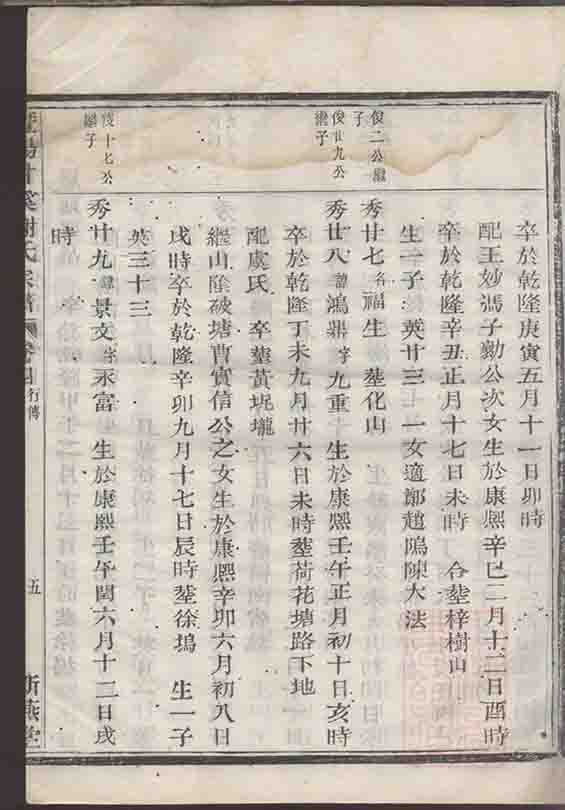 卒於乾隆庚寅五月十一日卯時
配王妙馮子勳公次女生於康熈辛巳二月十二日酉時
卒於乾隆辛丑正月十七日未時 合塟梓樹山
生一子 英廿三 一女適鄣趙隖陳大法
俊二公繼子
秀廿七名福生 塟化山
俊廿九公繼子
秀廿八諱鴻鼎字九重 生於康熈壬午正月初十日亥時
卒於乾隆丁未九月廿六日未時塟荷花塘路下地
配虞氏 卒塟黃坭壠
繼山陰破塘曹實信公之女生於康熈辛卯六月初八日
戌時卒於乾隆辛卯九月十七日辰時塟徐塢 生一子
英三十三
俊十七公繼子
秀廿九諱景文字永富 生於康熈壬午閏六月十二日戌
時
謝氏宗譜
行傳
五